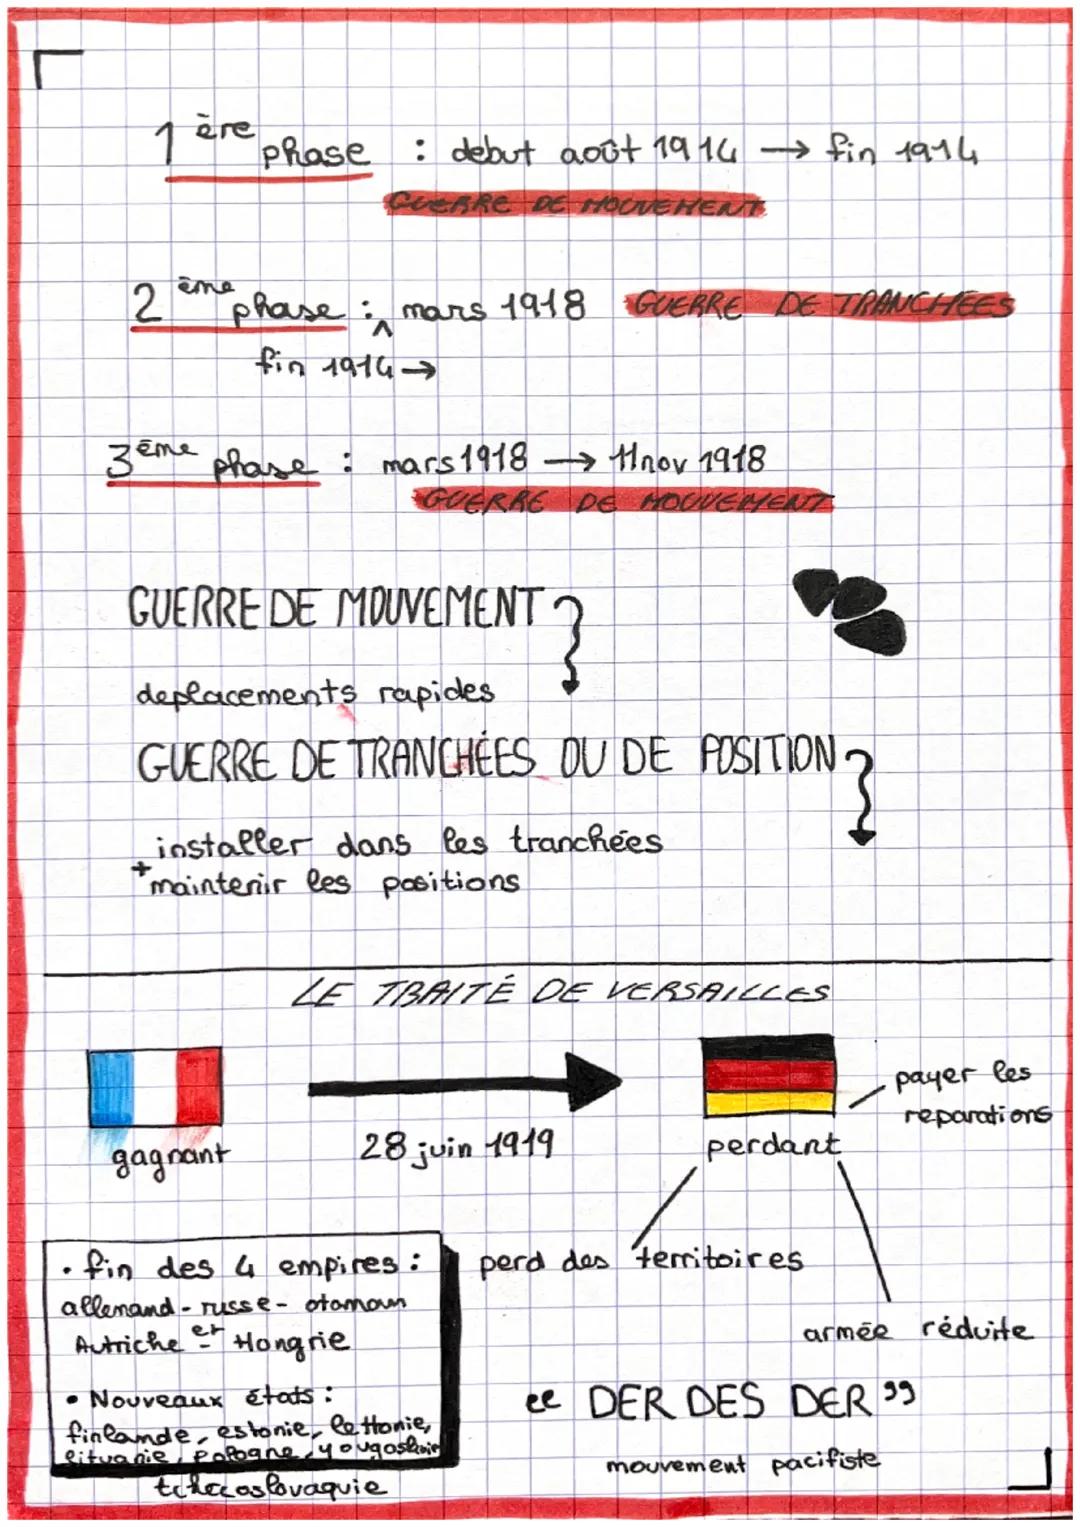 1ère phase : debut août 1914 → fin 1914
GUERRE DE MOUVEMENT
2ème phase : ^ mars 1918 GUERRE DE TRANCHÉES
fin 1914 →
3ème phase : mars 1918 → 11 nov 1918
GUERRE DE MOUVEMENT
GUERRE DE MOUVEMENT
deplacements rapides
GUERRE DE TRANCHÉES OU DE POSITION
installer dans les tranchées
+ maintenir les positions
LE TRAITÉ DE VERSAILLES
payer les
reparations
gagnant
28 juin 1919
perdant
• fin des 4 empires :
allemand - russe - otaman
Autriche et Hongrie
perd des territoires
armée réduite
• Nouveaux états :
finlande, estonie, lettonie,
lituanie, Pologne, yougoslavie
tchecoslovaquie
"DER DES DER"
mouvement pacifiste